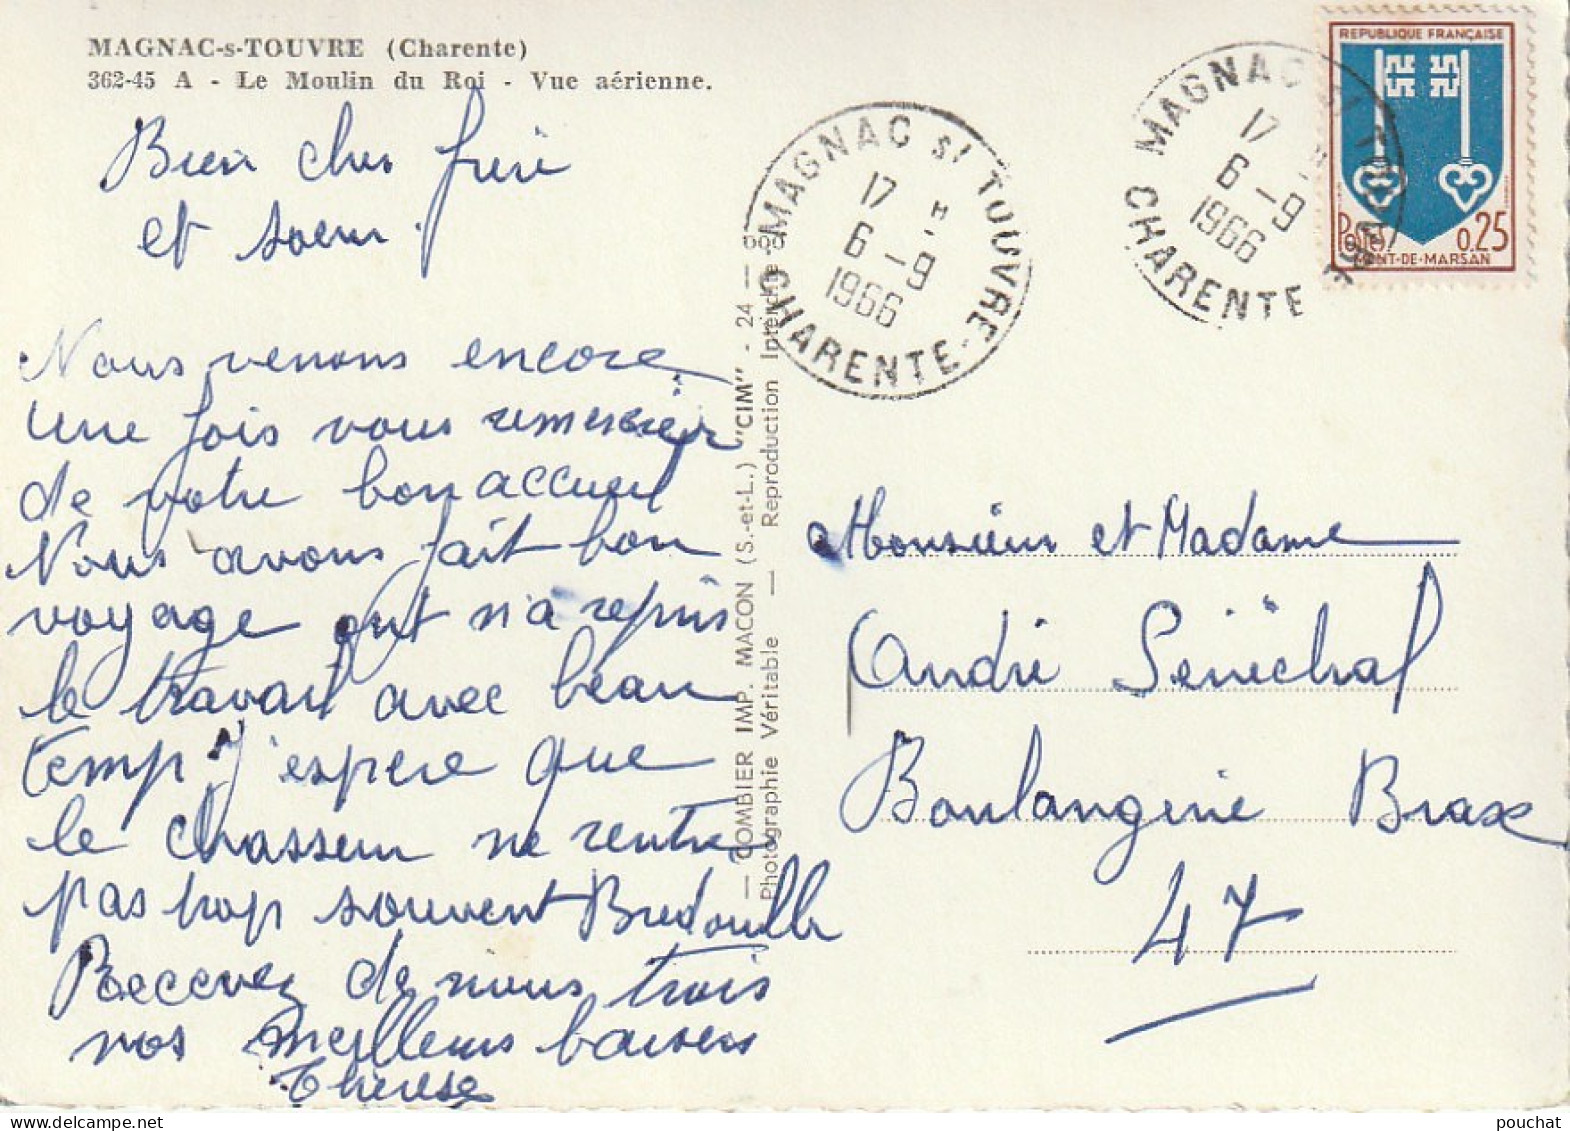 MAGNAC-s-TOUVRE (Charente)
362-45 A - Le Moulin du Roi - Vue aérienne.
Bien cher frère
et soeur.
Nous venons encore
une fois vous remercier
de votre bon accueil
Nous avons fait bon
voyage ont n'a repris
le travail avec beau
temp. J'espere que
le chasseur ne rentre
pas trop souvent Bredouille
Recevez de nous trois
nos meilleurs baisers
Thérèse
— COMBIER IMP. MACON (S.-et-L.) "CIM" - 24 —
Photographie Véritable — Reproduction Interdite
MAGNAC S/ TOUVRE
17 H
6 - 9
1966
CHARENTE
MAGNAC S/ TOUVRE
17 H
6 - 9
1966
CHARENTE
REPUBLIQUE FRANÇAISE
Postes 0.25
MONT-DE-MARSAN
Monsieur et Madame
André Sénéchal
Boulangerie Brax
47
pouchat